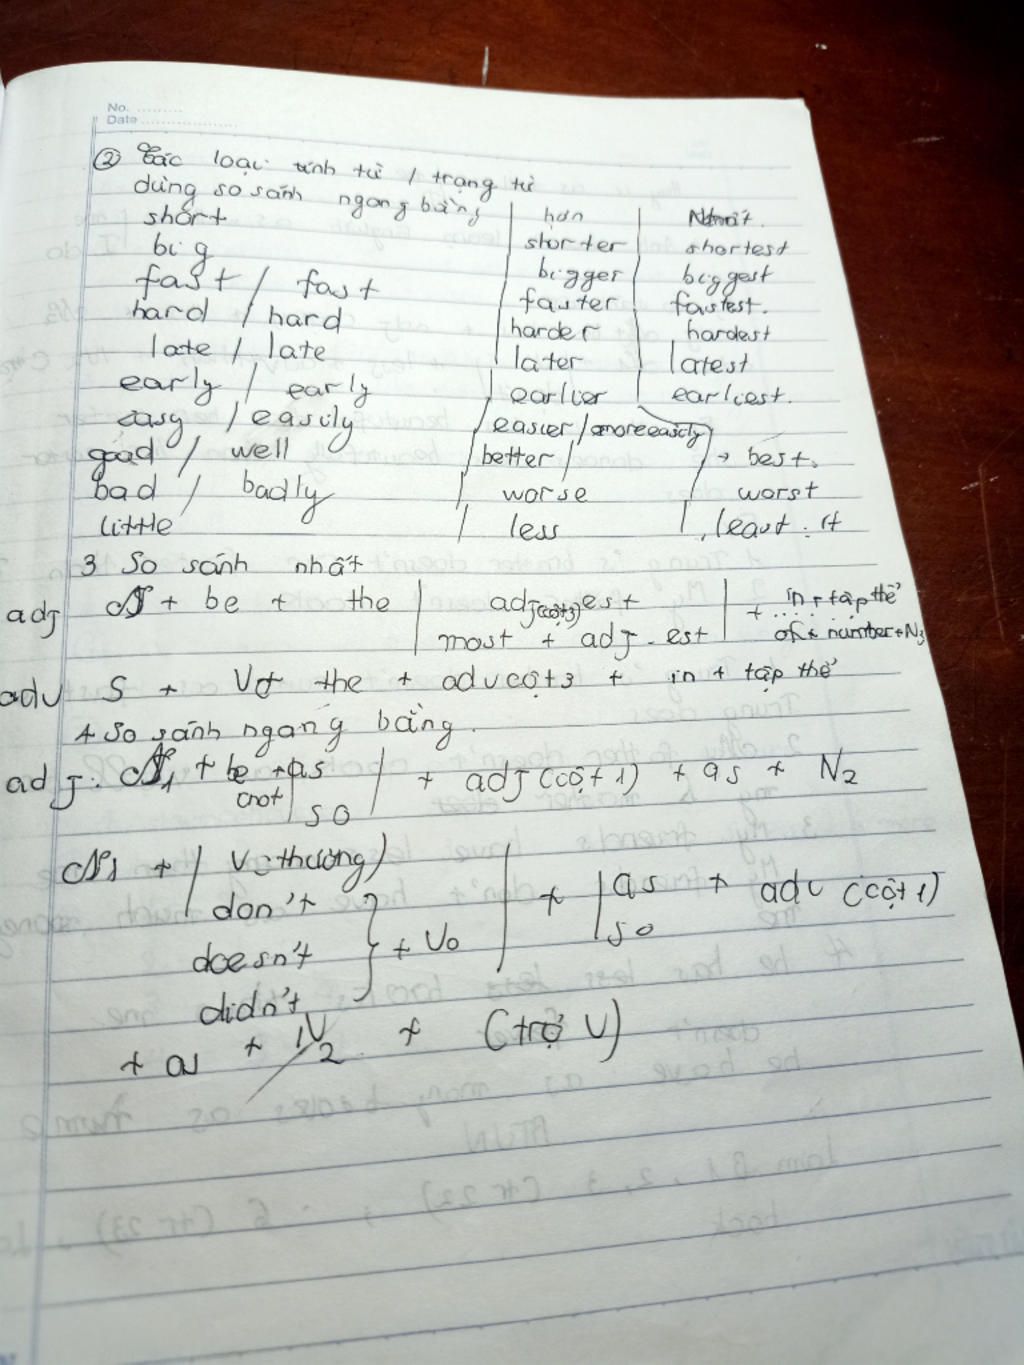 No. ..........
Date ....................
② Các loại tính từ / trạng từ
dùng so sánh ngang bằng | hơn | Nhất.
short | shorter | shortest
big | bigger | biggest
fast / fast | faster | fastest.
hard / hard | harder | hardest
late / late | later | latest
early / early | earlier | earliest.
easy / easily | easier / more easily
good / well | better / → best.
bad / badly | worse | worst
little | less |
3 So sánh nhất
adj N + be + the | adj(cột3)est | + in + tập thể
most + adj - est | of + number + N3
adv S + V + the + adv cột 3 + in + tập thể
4 So sánh ngang bằng.
adj: N1 + be + as | + adj (cột 1) + as + N2
(not so
N1 + | V(thường) | + | as + adv (cột 1)
don't
so
doesn't } + V0
didn't
+ as + N2 + (trợ V)